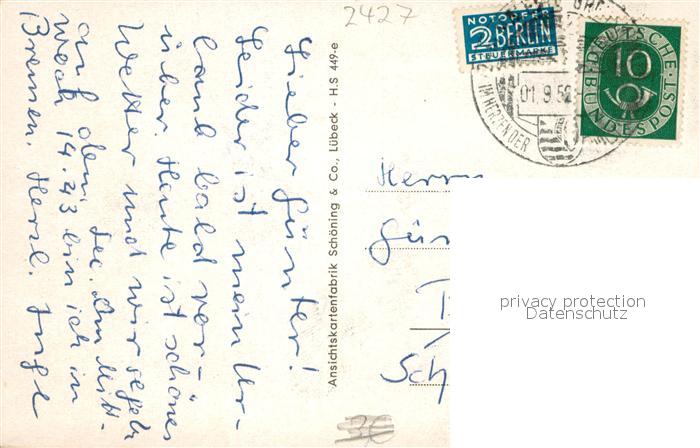 2427
NOTOPFER
2 BERLIN
STEUERMARKE
DEUTSCHE BUNDESPOST
10
01.9.52
IM HERZEN DER
Lieber Günter!
Leider ist mein Ur-
laub bald vor-
über. Heute ist schönes
Wetter und wir segeln
auf dem See. Am Mitt-
woch 14.43 bin ich in
Bremen. Herzl. Inge
Ansichtskartenfabrik Schöning & Co., Lübeck - H.S 449-e
Herrn
Gün
Sch
privacy protection
Datenschutz
36